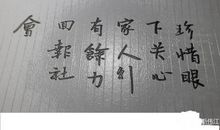 珍惜眼
下关心
家人行
有餘力
回報社
會